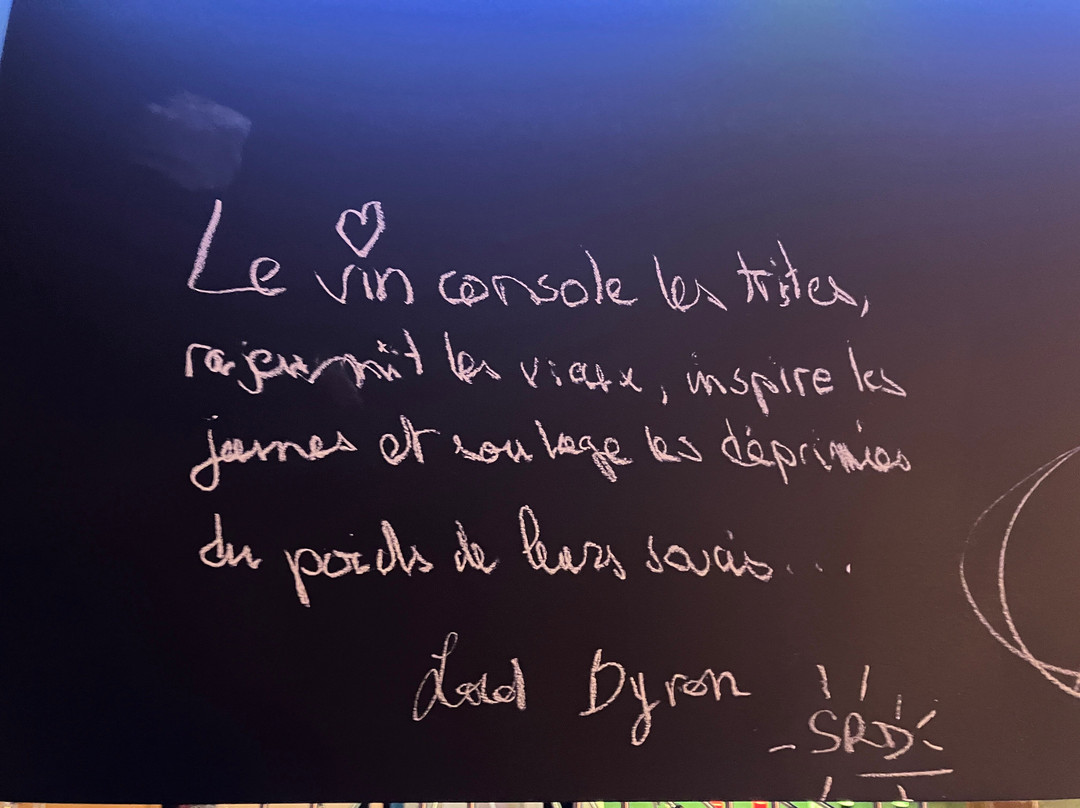 Le vin console les tristes,
rajeunit les vieux, inspire les
jeunes et soulage les déprimés
du poids de leurs soucis...
Lord Byron
SRD